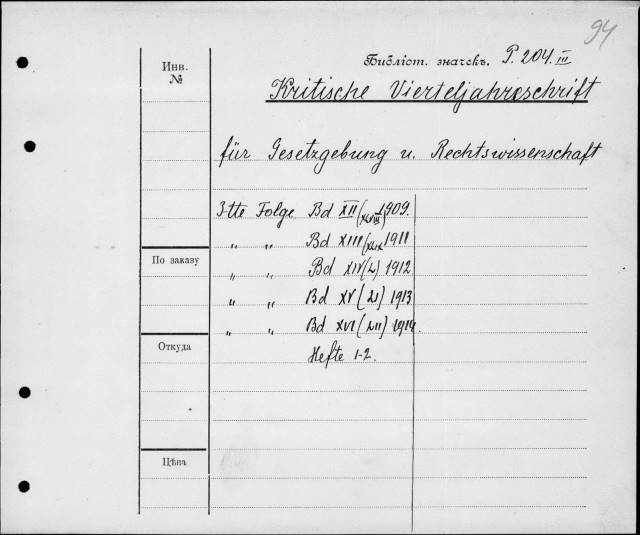 94
Библіот. значекъ. P. 204. III
Инв.
№
Kritische Vierteljahresschrift
für Gesetzgebung u. Rechtswissenschaft
3-tte Folge Bd XII (XLVIII) 1909.
„ „ Bd XIII (XLIX 1911
По заказу
„ „ Bd XIV (L) 1912
„ „ Bd XV (LI) 1913
„ „ Bd XVI (LII) 1914.
Откуда
Hefte 1-2.
Цѣна